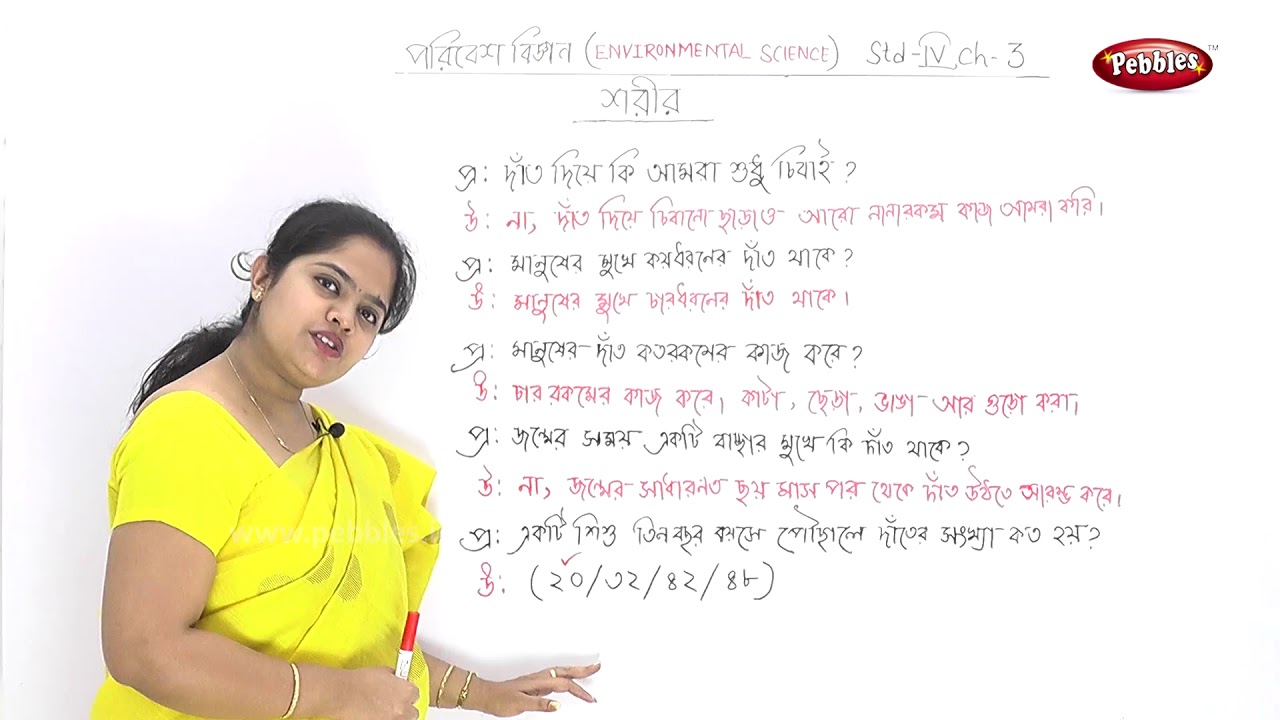 পরিবেশ বিজ্ঞান (ENVIRONMENTAL SCIENCE) Std-IV, Ch-3
Pebbles TM
শরীর
প্র: দাঁত দিয়ে কি আমরা শুধু চিবাই?
উ: না, দাঁত দিয়ে চিবানো ছাড়াও আরো নানারকম কাজ আমরা করি।
প্র: মানুষের মুখে কয়ধরনের দাঁত থাকে?
উ: মানুষের মুখে চারধরনের দাঁত থাকে।
প্র: মানুষের দাঁত কতরকমের কাজ করে?
উ: চার রকমের কাজ করে। কাটা, ছেড়া, ভাঙা আর গুড়ো করা।
প্র: জন্মের সময় একটি বাচ্চার মুখে কি দাঁত থাকে?
উ: না, জন্মের সাধারনত ছয় মাস পর থেকে দাঁত উঠতে আরম্ভ করে।
প্র: একটি শিশু তিনবছর বয়সে পৌছালে দাঁতের সংখ্যা কত হয়?
উ: (২০/৩২/৪২/৪৮)
www.pebbles